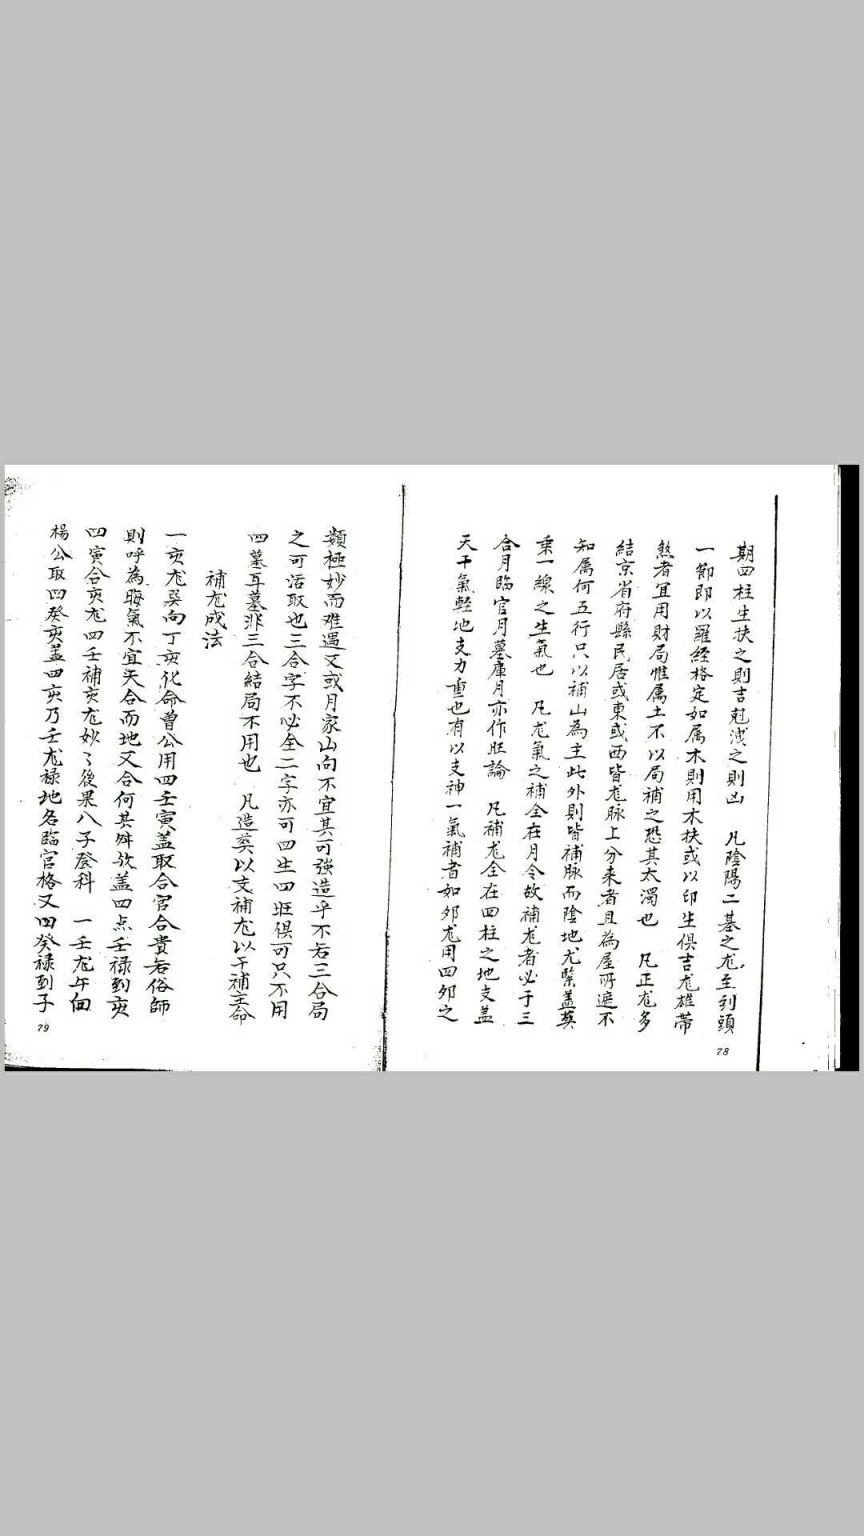 期四柱生扶之則吉尅洩之則凶　凡陰陽二基之龙至到頭
一節即以羅經格定如属木則用木扶或以印生俱吉龙雄带
煞者宜用財局惟属土不以局補之恐其太濁也　凡正龙多
結京省府縣民居或東或西皆龙脉上分来者且為屋所遮不
知属何五行只以補山為主此外則皆補脉而陰地尤緊盖葬
乗一線之生氣也　凡龙氣之補全在月令故補龙者必于三
合月臨官月墓庫月亦作旺論　凡補龙全在四柱之地支盖
天干氣軽地支力重也有以支神一氣補者如夘龙用四夘之
78
類極妙而难遇又或月家山向不宜其可強造乎不若三合局
之可活取也三合字不必全二字亦可四生四旺俱可只不用
四墓耳墓非三合結局不用也　凡造葬以支補龙以干補主命
補龙成法
一亥龙癸向丁亥化命曽公用四壬寅盖取合官合貴若俗師
則呼為晦氣不宜矢合而地又合何其舛欤盖四点壬禄到亥
四寅合亥龙四壬補亥龙妙〻後果八子登科　一壬龙午向
楊公取四癸亥盖四亥乃壬龙禄地名臨官格又四癸禄到子
79